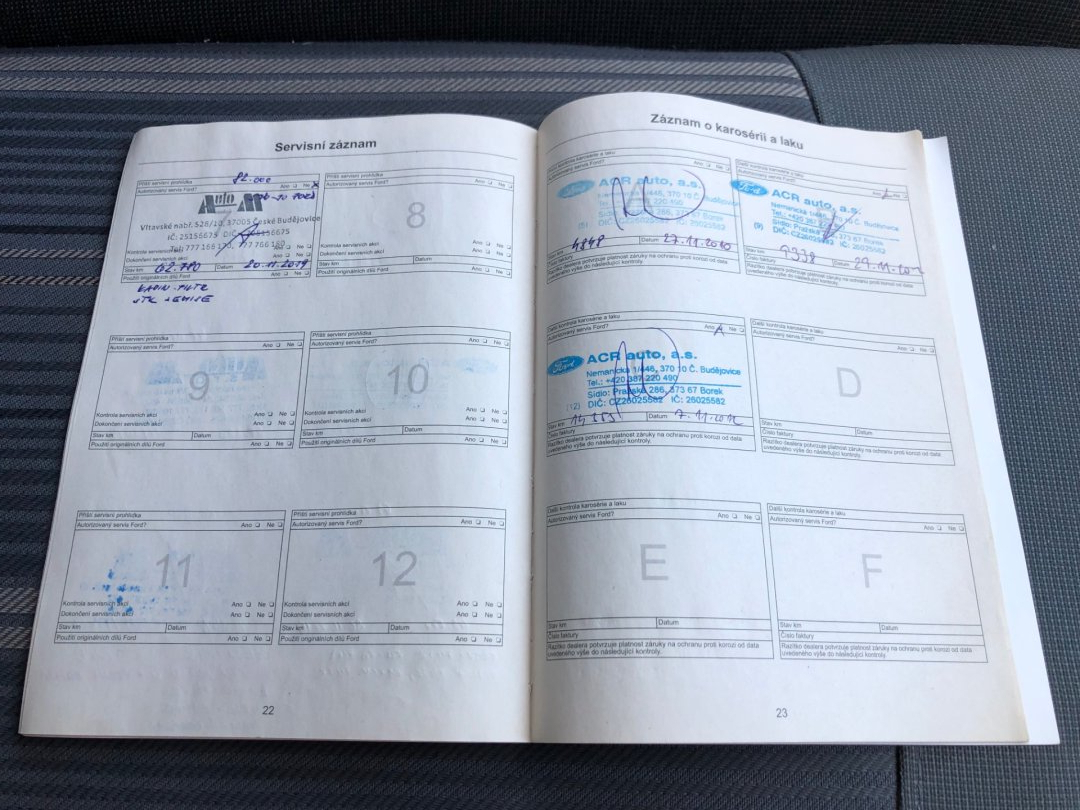 Servisní záznam
Příští servisní prohlídka 82.000
Autorizovaný servis Ford? Ano Ne
Auto M
Vltavské nábř. 528/10, 37005 České Budějovice
IČ: 25156675 DIČ:
Tel: 777 166 170, 777 766
Kontrola servisních akcí Ano Ne
Dokončení servisních akcí Ano Ne
Stav km Datum 20.11.2019
Použití originálních dílů Ford Ano Ne
KABIN. FILTR
Příští servisní prohlídka
Autorizovaný servis Ford? Ano Ne
8
Kontrola servisních akcí Ano Ne
Dokončení servisních akcí Ano Ne
Stav km Datum
Použití originálních dílů Ford Ano Ne
Příští servisní prohlídka
Autorizovaný servis Ford? Ano Ne
9
Kontrola servisních akcí Ano Ne
Dokončení servisních akcí Ano Ne
Stav km Datum
Použití originálních dílů Ford Ano Ne
Příští servisní prohlídka
Autorizovaný servis Ford? Ano Ne
10
Kontrola servisních akcí Ano Ne
Dokončení servisních akcí Ano Ne
Stav km Datum
Použití originálních dílů Ford Ano Ne
Příští servisní prohlídka
Autorizovaný servis Ford? Ano Ne
11
Kontrola servisních akcí Ano Ne
Dokončení servisních akcí Ano Ne
Stav km Datum
Použití originálních dílů Ford Ano Ne
Příští servisní prohlídka
Autorizovaný servis Ford? Ano Ne
12
Kontrola servisních akcí Ano Ne
Dokončení servisních akcí Ano Ne
Stav km Datum
Použití originálních dílů Ford Ano Ne
22
Záznam o karosérii a laku
Další kontrola karosérie a laku
Ano Ne
Ford ACR auto, a.s.
1/446, 370 10 Č. Budějovice
220 490
Sídlo: 286, 373 67 Borek
(5)
4848 Datum 27.11.2010
Číslo faktury
Razítko dealera potvrzuje platnost záruky na ochranu proti korozi od data
uvedeného výše do následující kontroly.
Další kontrola karosérie a laku
Autorizovaný servis Ford? Ano Ne
Ford ACR auto, a.s.
Nemanická 10 Č. Budějovice
Tel.: +420 387
(9) Sídlo: Pražská 373 67 Borek
DIČ: CZ26025582 IČ: 26025582
Stav km 9338 Datum
Číslo faktury
Razítko dealera potvrzuje platnost záruky na ochranu proti korozi od data
uvedeného výše do následující kontroly.
Další kontrola karosérie a laku
Autorizovaný servis Ford? Ano Ne
Ford ACR auto, a.s.
Nemanická 1/446, 370 10 Č. Budějovice
Tel.: +420 387 220 490
Sídlo: Pražská 286, 373 67 Borek
(12) DIČ: CZ26025582 IČ: 26025582
Stav km Datum 7.11.2012
Číslo faktury
Razítko dealera potvrzuje platnost záruky na ochranu proti korozi od data
uvedeného výše do následující kontroly.
Další kontrola karosérie a laku
Autorizovaný servis Ford? Ano Ne
D
Stav km Datum
Číslo faktury
Razítko dealera potvrzuje platnost záruky na ochranu proti korozi od data
uvedeného výše do následující kontroly.
Další kontrola karosérie a laku
Autorizovaný servis Ford? Ano Ne
E
Stav km Datum
Číslo faktury
Razítko dealera potvrzuje platnost záruky na ochranu proti korozi od data
uvedeného výše do následující kontroly.
Další kontrola karosérie a laku
Autorizovaný servis Ford? Ano Ne
F
Stav km Datum
Číslo faktury
Razítko dealera potvrzuje platnost záruky na ochranu proti korozi od data
uvedeného výše do následující kontroly.
23